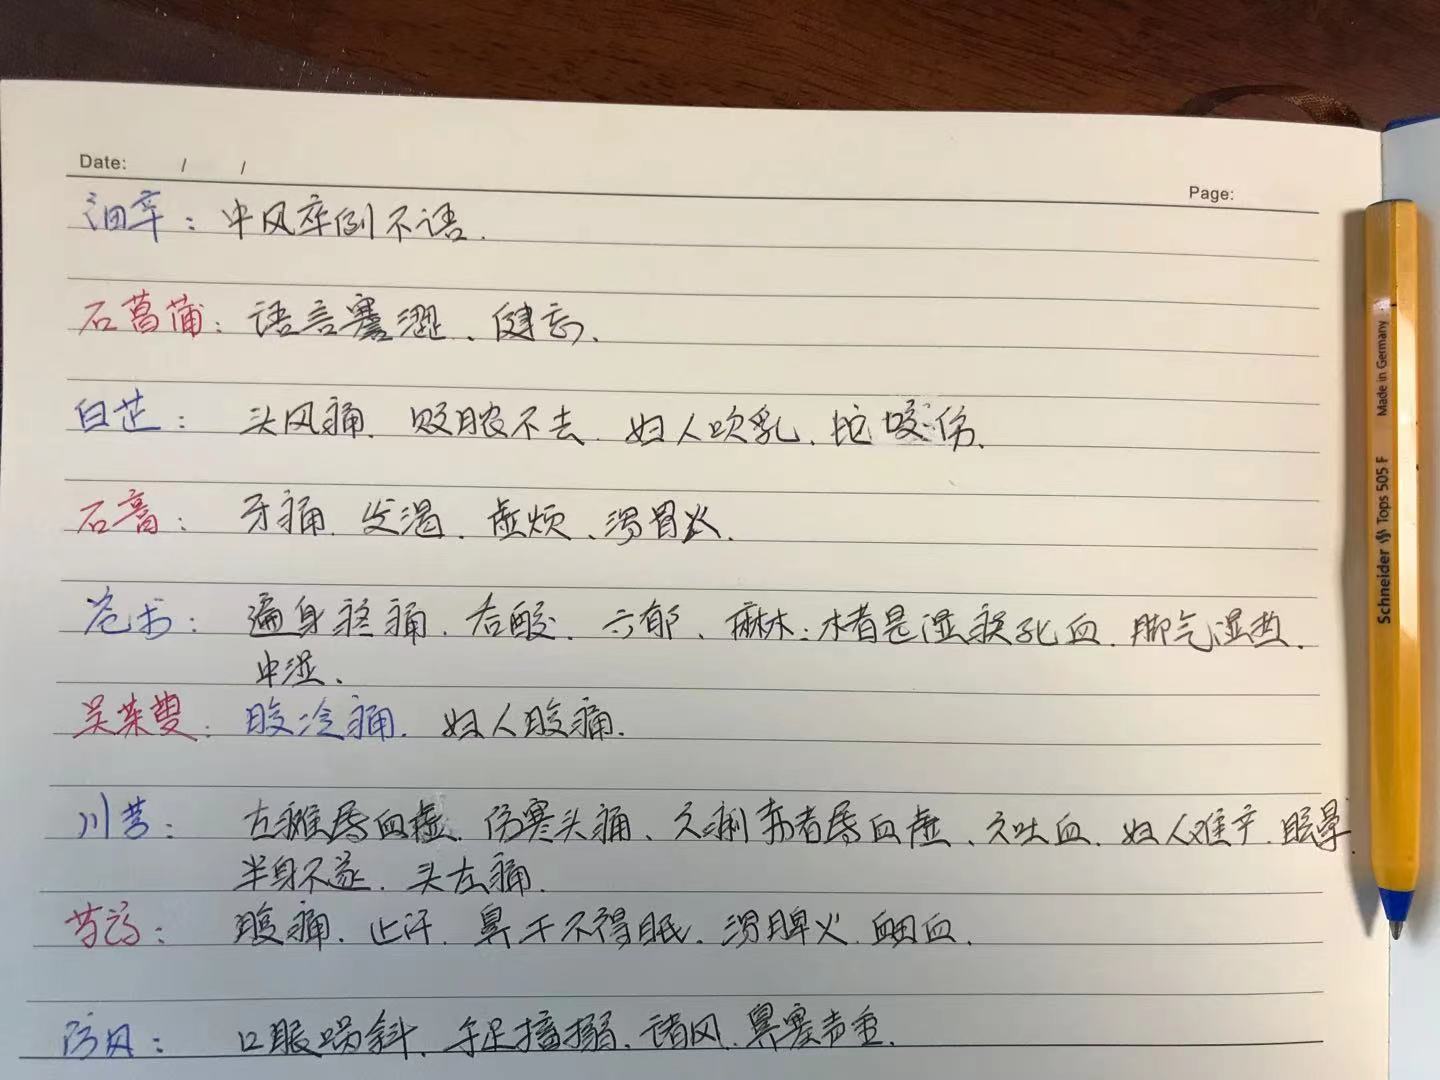 Date: / /
Page:
细辛：中风卒倒不语.
石菖蒲：语言蹇涩、健忘.
白芷：头风痛、败脓不去、妇人吹乳、蛇咬伤.
石膏：牙痛、发渴、虚烦、泻胃火.
苍术：遍身疼痛、吞酸、六郁、麻木：木者是湿痰死血、脚气湿热、
中湿、
吴茱萸：腹冷痛、妇人腹痛.
川芎：左瘫属血虚、伤寒头痛、久痢弗者属血虚、久吐血、妇人难产、眼晕、
半身不遂、头左痛.
芍药：腹痛、止汗、鼻干不得眠、泻脾火、衄血.
防风：口眼㖞斜、手足搐搦、诸风、鼻塞声重.
Schneider Tops 505 F Made in Germany